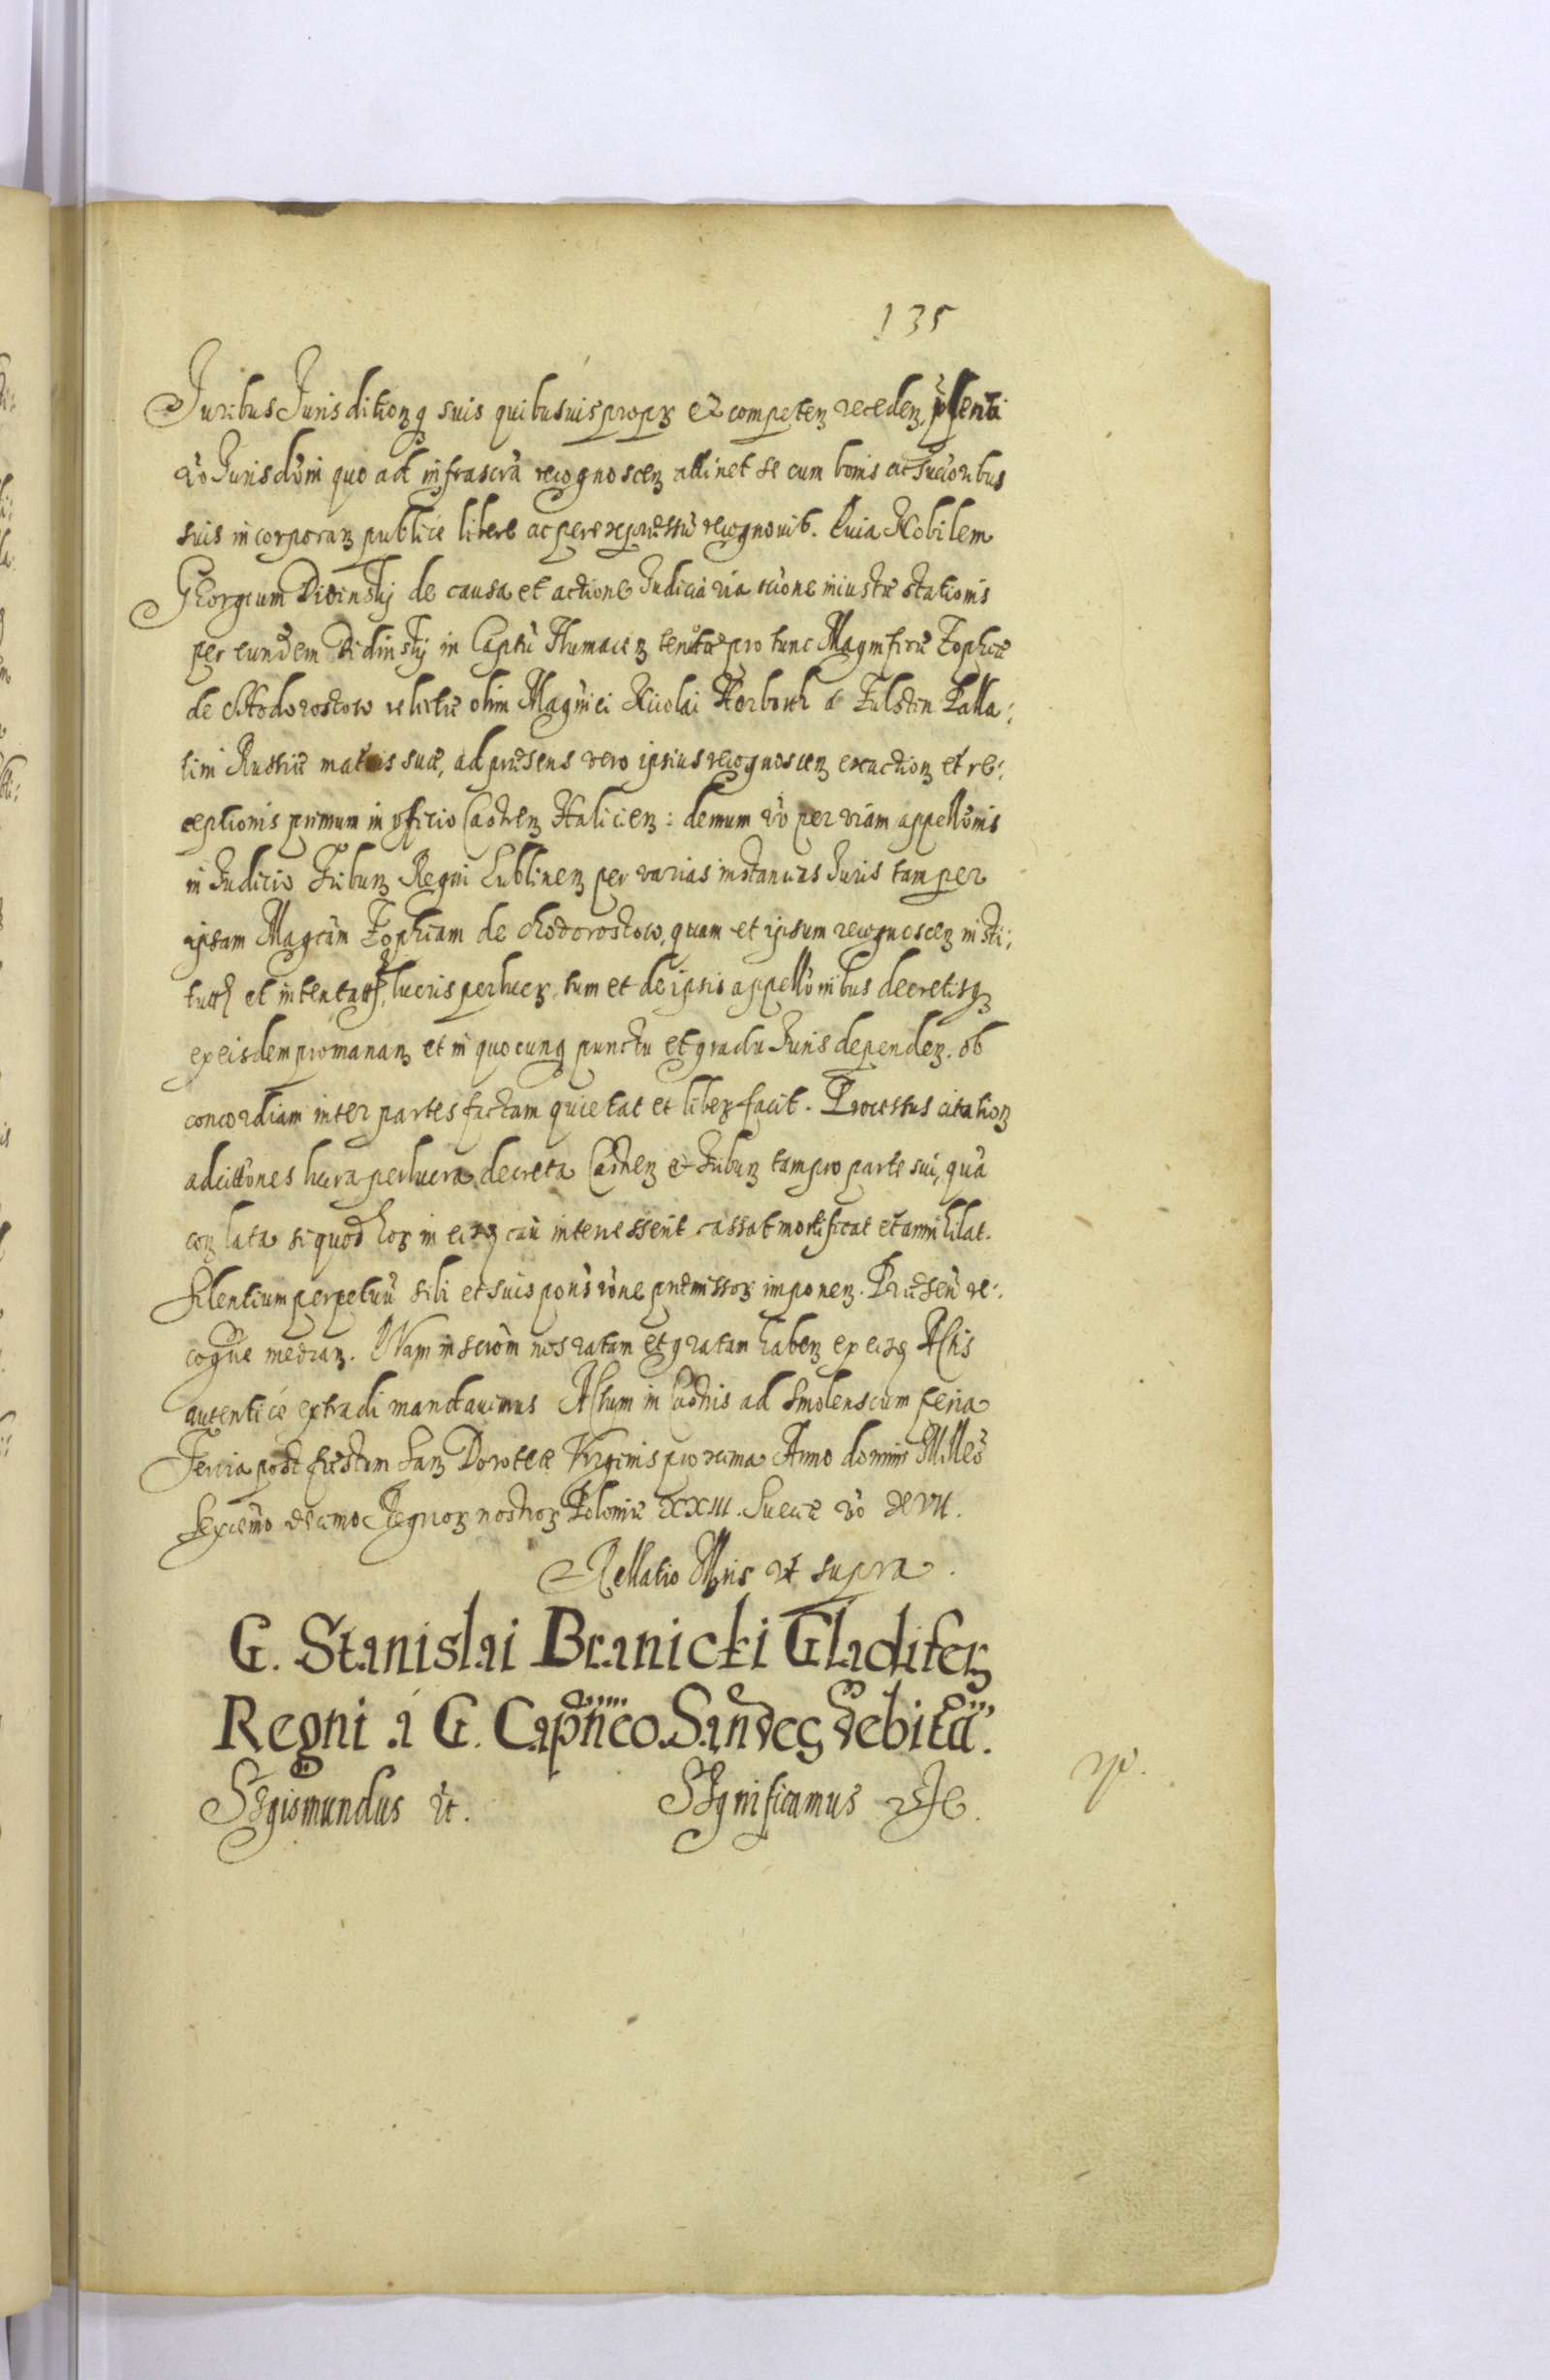 135
Juribus Jurisditionq suis quibusuis propr et competen receden, pñti
vo Jurisdoni quo ad infrascra recognoscen attinet se cum bonis ac succoribus
suis incorporan publice libere ac per expressu recognouit. Quia Nobilem
Georgium Didinskij de causa et actione Judiciaria racione iniustæ stationis
per eundem Didinskij in Captu Tlumacen tentæ pro tunc Magnificæ Zophiæ
de Chodorostow relictæ olim Magnici Nicolai Herborth a Fulstin Palla:
tini Russiæ matris suæ, ad præsens vero ipsius recognoscen exaction et re:
ceptionis primum in officio Castren Halicien: demum vo per viam appellonis
in Judicio Tribun Regni Lublinen per varias instancias Juris tam per
ipsam Magcam Zophiam de chodorostow, quam et ipsum recognoscen insti:
tutt et intentatt, lucris perlucr, tum et de ipsis appellonibus decretisq
ex eisdem promanan et in quocunq punctu et gradu Juris dependen. ob
concordiam inter partes factam quietat et liber facit. Processus citation
adcitones lucra perlucra decreta Castren et Tribun tam pro parte sui, qua
con lata si quod hor in eisq cau interuessent cassat mortificat et annihilat.
Silentium perpetuu sibi et suis ponsione præmissor imponen. Præsen re:
cogne median. Quam inscrom nos ratam et gratam haben ex eisq Actis
autentice extradi mandauimus Actum in Castris ad Smolenscum feria
Tercia post festum San Doroteæ Virginis proxima Anno domini Milleo
Sexcemo decimo Regnor nostror Poloniæ XXIII. Sueciæ vo XVII.
Rellatio Mtis vt supra.
G. Stanislai Branicki Gladifer
Regni a G. Capneo Sandec debita.
Sigismundus etc. Significamus etc.